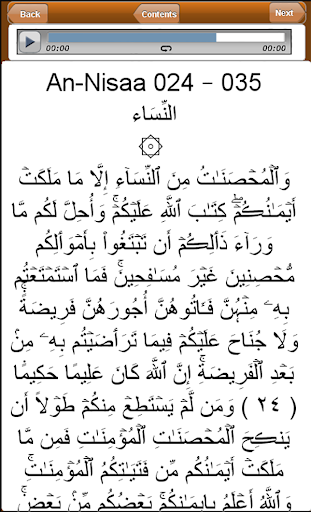 Back
Contents
Next
00:00
00:00
An-Nisaa 024 - 035
النِّسَاء
۞
وَٱلۡمُحۡصَنَـٰتُ مِنَ ٱلنِّسَآءِ إِلَّا مَا مَلَكَتۡ
أَيۡمَـٰنُڪُمۡ‌ۖ كِتَـٰبَ ٱللَّهِ عَلَيۡكُمۡ‌ۚ وَأُحِلَّ لَكُم مَّا
وَرَآءَ ذَٲلِڪُمۡ أَن تَبۡتَغُواْ بِأَمۡوَٲلِكُم
مُّحۡصِنِينَ غَيۡرَ مُسَـٰفِحِينَ‌ۚ فَمَا ٱسۡتَمۡتَعۡتُم
بِهِۦ مِنۡہُنَّ فَـَٔاتُوهُنَّ أُجُورَهُنَّ فَرِيضَةً۬‌ۚ
وَلَا جُنَاحَ عَلَيۡكُمۡ فِيمَا تَرَٲضَيۡتُم بِهِۦ مِنۢ
بَعۡدِ ٱلۡفَرِيضَةِ‌ۚ إِنَّ ٱللَّهَ كَانَ عَلِيمًا حَكِيمً۬ا
( ٢٤ ) وَمَن لَّمۡ يَسۡتَطِعۡ مِنكُمۡ طَوۡلاً أَن
يَنڪِحَ ٱلۡمُحۡصَنَـٰتِ ٱلۡمُؤۡمِنَـٰتِ فَمِن مَّا
مَلَكَتۡ أَيۡمَـٰنُكُم مِّن فَتَيَـٰتِكُمُ ٱلۡمُؤۡمِنَـٰتِ‌ۚ
وَٱللَّهُ أَعۡلَمُ بِإِيمَـٰنِكُم‌ۚ بَعۡضُكُم مِّنۢ بَعۡضٍ۬‌ۚ